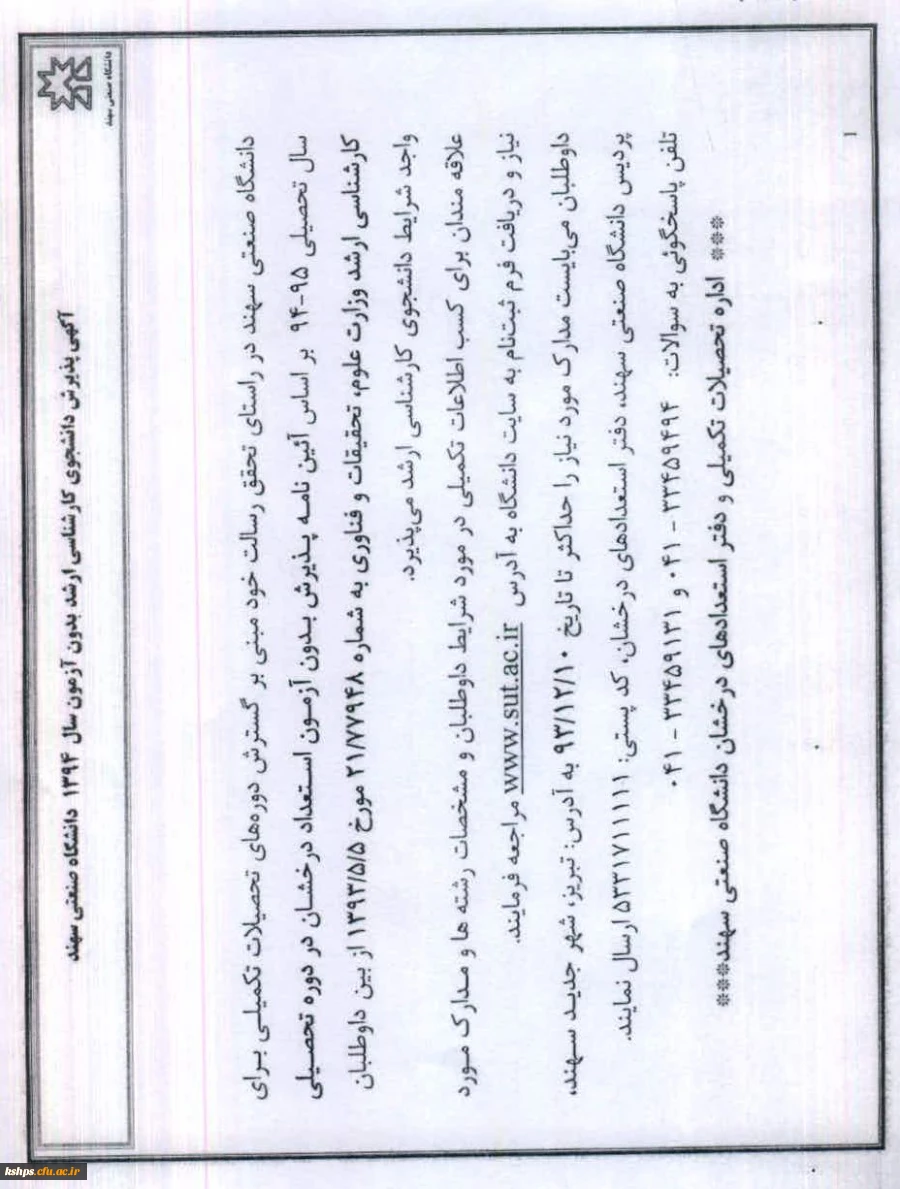 دانشگاه صنعتی سهند
آگهی پذیرش دانشجوی کارشناسی ارشد بدون آزمون سال ۱۳۹۴ دانشگاه صنعتی سهند
دانشگاه صنعتی سهند در راستای تحقق رسالت خود مبنی بر گسترش دوره‌های تحصیلات تکمیلی برای
سال تحصیلی ۹۵-۹۴ بر اساس آئین نامه پذیرش بدون آزمون استعداد درخشان در دوره تحصیلی
کارشناسی ارشد وزارت علوم، تحقیقات و فناوری به شماره ۲۱/۷۷۹۴۸ مورخ ۱۳۹۳/۵/۵ از بین داوطلبان
واجد شرایط دانشجوی کارشناسی ارشد می‌پذیرد.
علاقه مندان برای کسب اطلاعات تکمیلی در مورد شرایط داوطلبان و مشخصات رشته ها و مدارک مورد
نیاز و دریافت فرم ثبت‌نام به سایت دانشگاه به آدرس www.sut.ac.ir مراجعه فرمایند.
داوطلبان می‌بایست مدارک مورد نیاز را حداکثر تا تاریخ ۹۳/۱۲/۱۰ به آدرس: تبریز، شهر جدید سهند،
پردیس دانشگاه صنعتی سهند، دفتر استعدادهای درخشان، کد پستی: ۵۳۳۱۷۱۱۱۱۱ ارسال نمایند.
تلفن پاسخگوئی به سوالات: ۳۳۴۵۹۴۹۴ - ۰۴۱ و ۳۳۴۵۹۱۳۱ - ۰۴۱
*** اداره تحصیلات تکمیلی و دفتر استعدادهای درخشان دانشگاه صنعتی سهند***
1
kshps.cfu.ac.ir